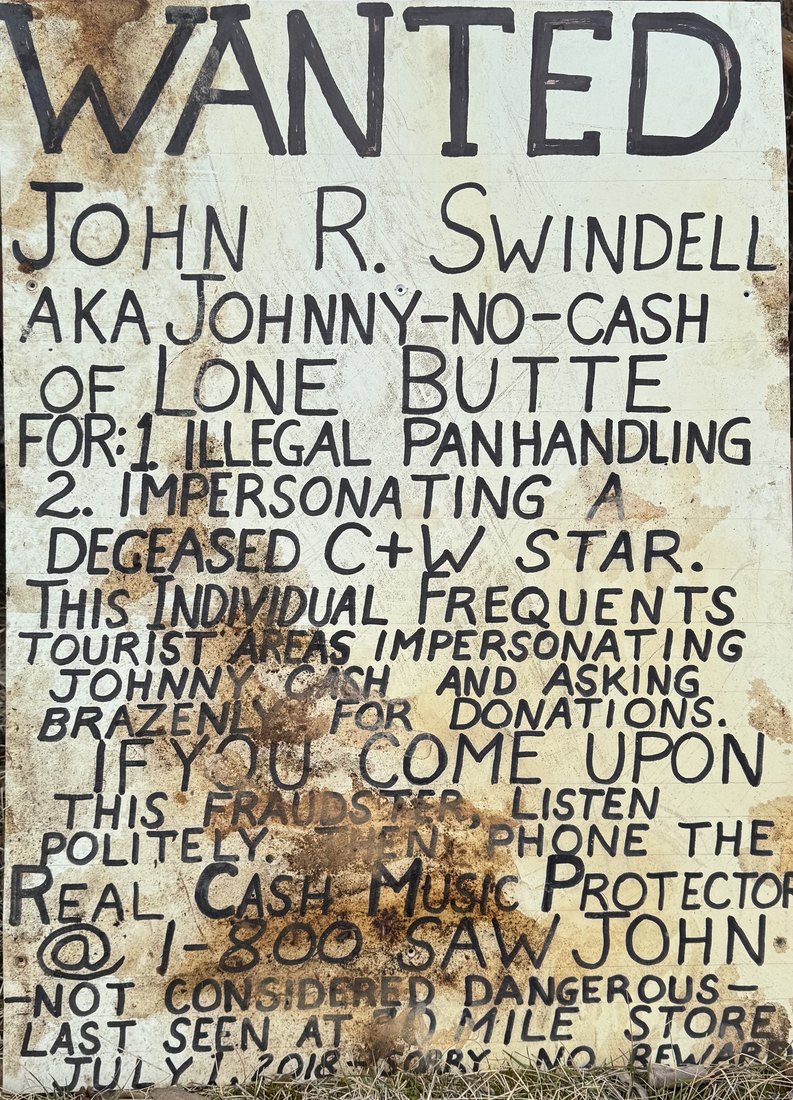 WANTED
JOHN R. SWINDELL
AKA JOHNNY-NO-CASH
OF LONE BUTTE
FOR: 1. ILLEGAL PANHANDLING
2. IMPERSONATING A
DECEASED C+W STAR.
THIS INDIVIDUAL FREQUENTS
TOURIST AREAS IMPERSONATING
JOHNNY CASH AND ASKING
BRAZENLY FOR DONATIONS.
IF YOU COME UPON
THIS FRAUDSTER, LISTEN
POLITELY. THEN PHONE THE
REAL CASH MUSIC PROTECTOR
@ 1-800 SAW JOHN
-NOT CONSIDERED DANGEROUS-
LAST SEEN AT MILE STORE
JULY 1, 2018 - SORRY NO REWARD